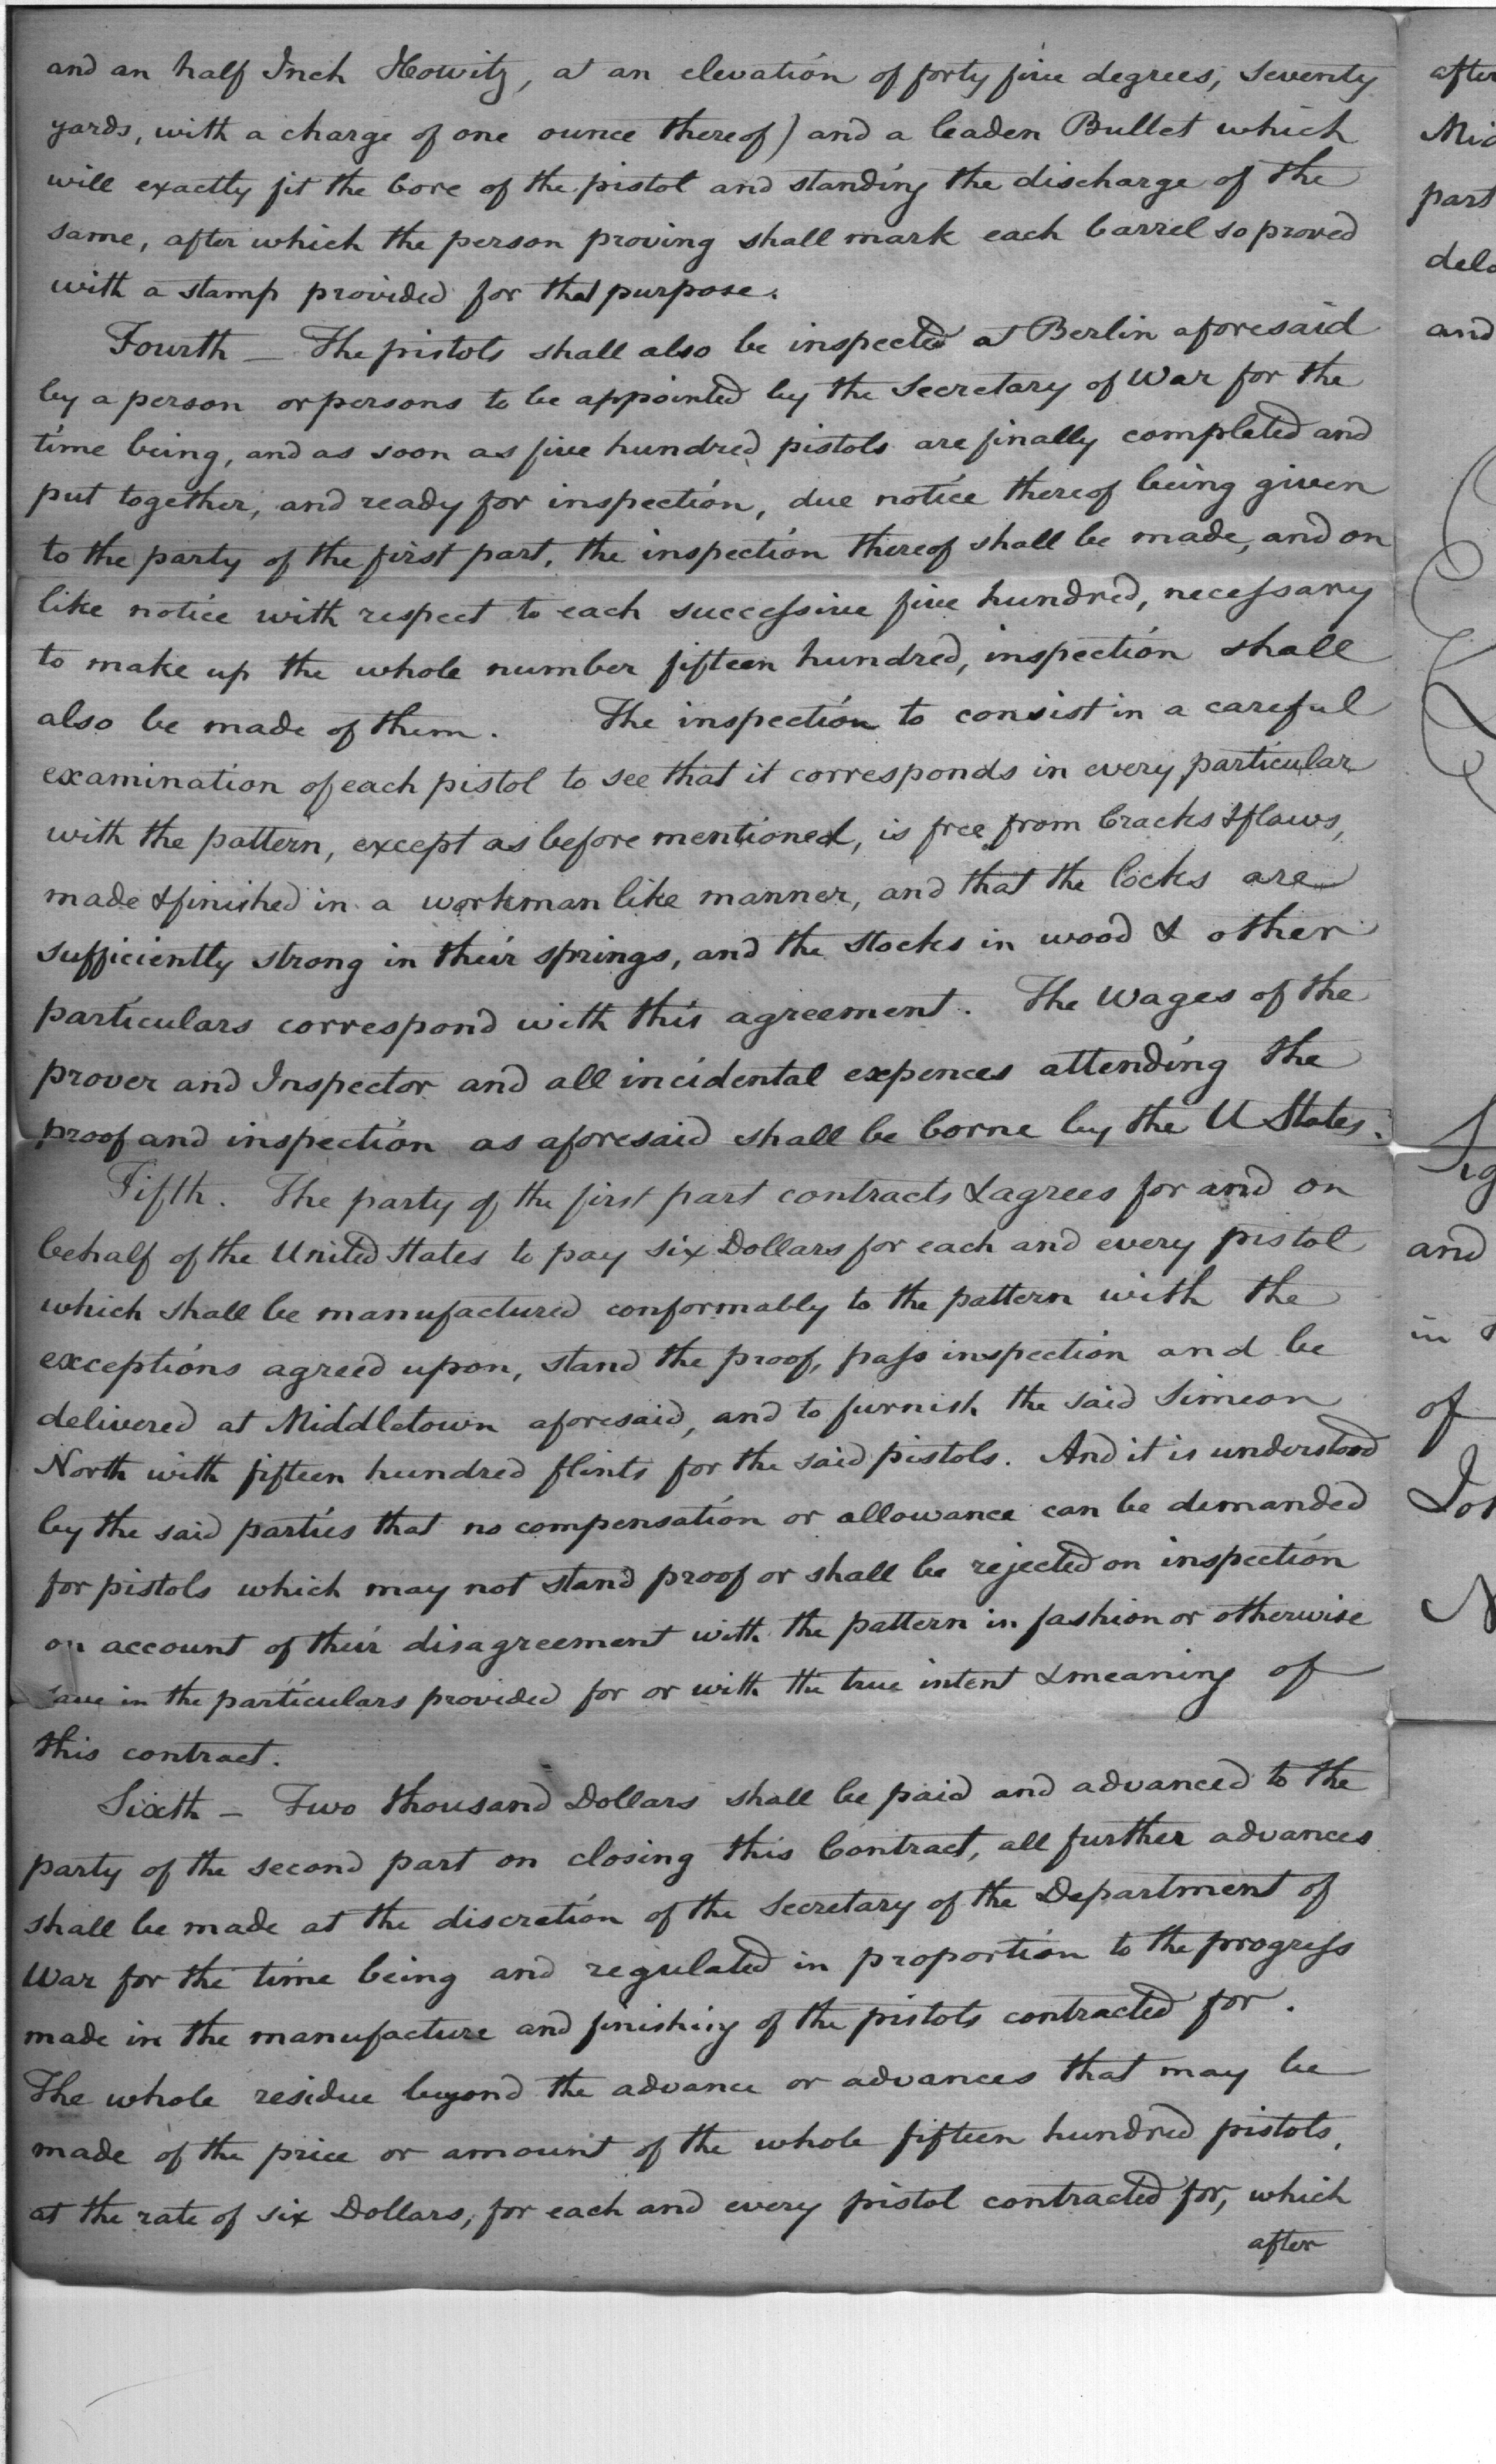 and an half Inch Howitz, at an elevation of forty five degrees, seventy
yards, with a charge of one ounce thereof) and a leaden Bullet which
will exactly fit the bore of the pistol and standing the discharge of the
same, after which the person proving shall mark each barrel so proved
with a stamp provided for that purpose.
Fourth — The pistols shall also be inspected at Berlin aforesaid
by a person or persons to be appointed by the Secretary of War for the
time being, and as soon as five hundred pistols are finally completed and
put together, and ready for inspection, due notice thereof being given
to the party of the first part, the inspection thereof shall be made, and on
like notice with respect to each successive five hundred, necessary
to make up the whole number fifteen hundred, inspection shall
also be made of them. The inspection to consist in a careful
examination of each pistol to see that it corresponds in every particular
with the pattern, except as before mentioned, is free from Cracks & flaws,
made & finished in a workman like manner, and that the locks are
sufficiently strong in their springs, and the stocks in wood & other
particulars correspond with this agreement. The wages of the
prover and Inspector and all incidental expences attending the
proof and inspection as aforesaid shall be borne by the U States.
Fifth. The party of the first part contracts & agrees for and on
behalf of the United States to pay six Dollars for each and every pistol
which shall be manufactured conformably to the pattern with the
exceptions agreed upon, stand the proof, pass inspection and be
delivered at Middletown aforesaid, and to furnish the said Simeon
North with fifteen hundred flints for the said pistols. And it is understood
by the said parties that no compensation or allowance can be demanded
for pistols which may not stand proof or shall be rejected on inspection
on account of their disagreement with the pattern in fashion or otherwise
save in the particulars provided for or with the true intent & meaning of
this contract.
Sixth — Two thousand Dollars shall be paid and advanced to the
party of the second part on closing this Contract, all further advances
shall be made at the discretion of the Secretary of the Department of
War for the time being and regulated in proportion to the progress
made in the manufacture and finishing of the pistols contracted for.
The whole residue beyond the advance or advances that may be
made of the price or amount of the whole fifteen hundred pistols,
at the rate of six Dollars, for each and every pistol contracted for, which
after
after
part
and
and
in
of